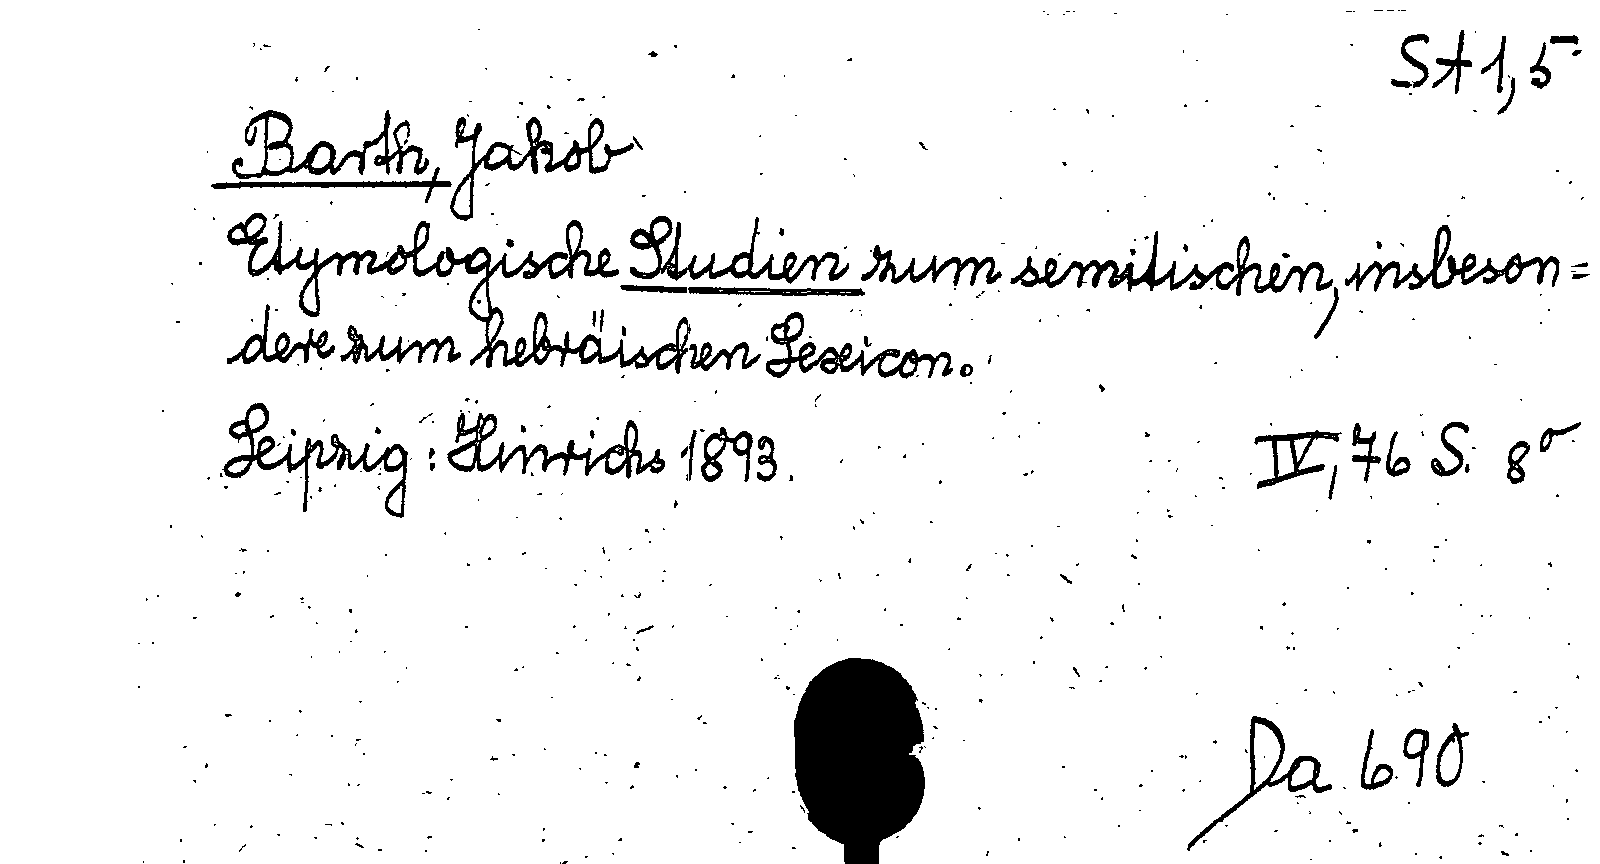 St 1,5
Barth, Jakob
Etymologische Studien zum semitischen, insbeson=
dere zum hebräischen Lexicon.
Leipzig: Hinrichs 1893. IV, 76 S. 8°
Da 690